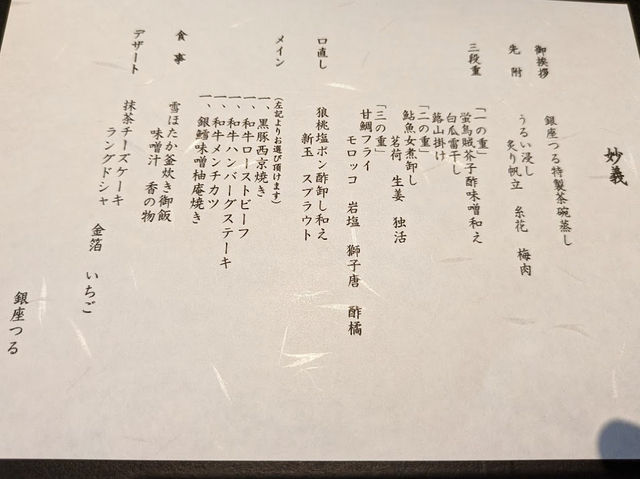 妙義
御挨拶
銀座つる特製茶碗蒸し
先附
うるい浸し
炙り帆立 糸花 梅肉
三段重
「一の重」
蛍烏賊芥子酢味噌和え
白瓜雷干し
蕗山掛け
「二の重」
鮎魚女煮卸し
茗荷 生姜 独活
「三の重」
甘鯛フライ
モロッコ 岩塩 獅子唐 酢橘
口直し
狼桃塩ポン酢卸し和え
新玉 スプラウト
メイン
(左記よりお選び頂けます)
一、黒豚西京焼き
一、和牛ローストビーフ
一、和牛ハンバーグステーキ
一、和牛メンチカツ
一、銀鱈味噌柚庵焼き
食事
雪ほたか釜炊き御飯
味噌汁 香の物
デザート
抹茶チーズケーキ
ラングドシャ 金箔 いちご
銀座つる